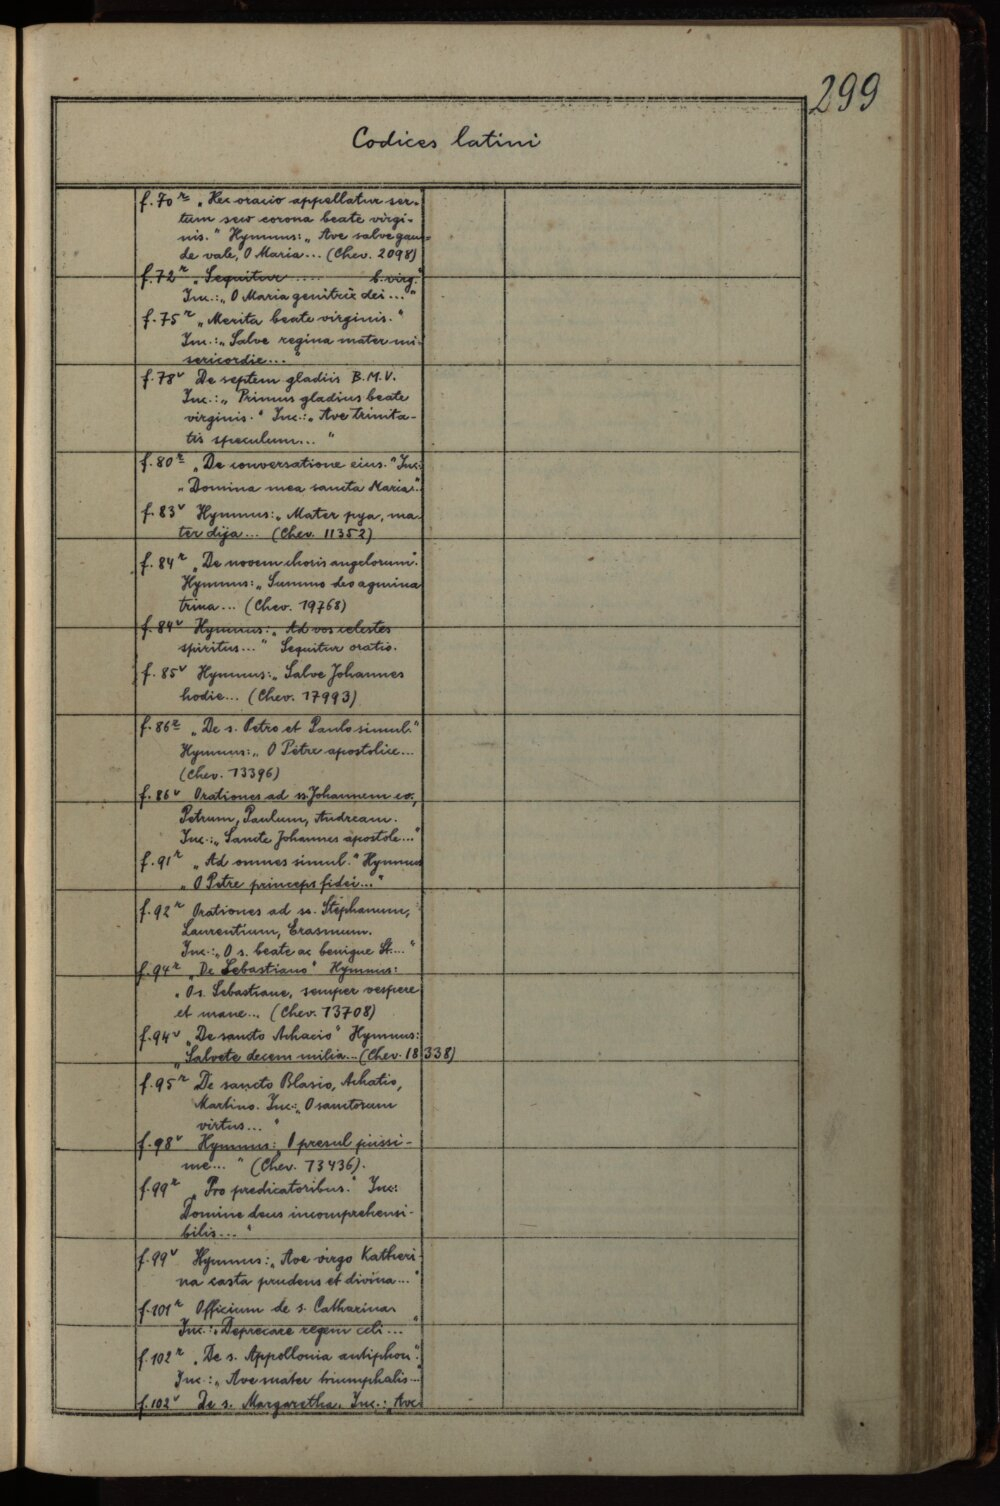 299
Codices latini
f. 70r „Hec oracio appellatur ser-
tum seu corona beate virgi-
nis." Hymnus: „Ave salve gau-
de vale, O Maria... (Chev. 2098)
f. 72r „Sequitur ..... b. virg."
Inc.: „O Maria genitrix dei..."
f. 75r „Merita beate virginis."
Inc.: „Salve regina mater mi-
sericordie..."
f. 78v De septem gladiis B.M.V.
Inc.: „Primus gladius beate
virginis." Inc.: „Ave trinita-
tis speculum..."
f. 80r „De conversatione eius." Inc.:
„Domina mea sancta Maria."
f. 83v Hymnus: „Mater pya, ma-
ter dija... (Chev. 11352)
f. 84r „De novem choris angelorum."
Hymnus: „Summo deo agmina
trina... (Chev. 19768)
f. 84v Hymnus: „Ad vos celestes
spiritus..." Sequitur oratio.
f. 85v Hymnus: „Salve Johannes
hodie... (Chev. 17993)
f. 86r „De s. Petro et Paulo simul."
Hymnus: „O Petre apostolice...
(Chev. 13396)
f. 86v Orationes ad ss. Johannem ev.,
Petrum, Paulum, Andream.
Inc.: „Sancte Johannes apostole..."
f. 91r „Ad omnes simul." Hymnus
„O Petre princeps fidei..."
f. 92r Orationes ad ss. Stephanum,
Laurentium, Erasmum.
Inc.: „O s. beate ac benigne St...."
f. 94r „De Sebastiano" Hymnus:
„O s. Sebastiane, semper vespere
et mane... (Chev. 13708)
f. 94v „De sancto Achacio" Hymnus:
„Salvete decem milia... (Chev. 18338)
f. 95r De sancto Blasio, Achatio,
Martino. Inc.: „O sanctorum
virtus..."
f. 98v Hymnus: „O presul piissi-
me..." (Chev. 13436).
f. 99r „Pro predicatoribus." Inc:
Domine deus incomprehensi-
bilis..."
f. 99v Hymnus: „Ave virgo Katheri-
na casta prudens et divina..."
f. 101r Officium de s. Catharina.
Inc.: „Deprecare regem celi..."
f. 102r „De s. Appollonia antiphon."
Inc.: „Ave mater triumphalis...
f. 102v De s. Margaretha. Inc.: „Ave